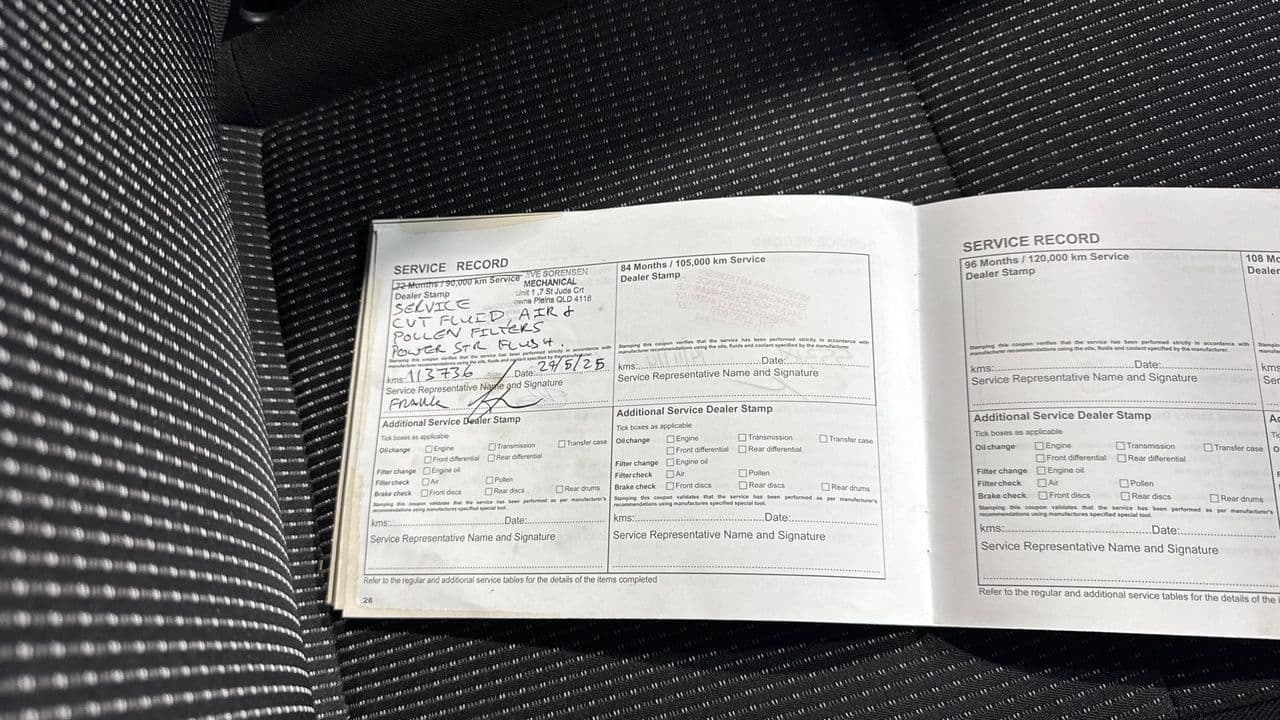 SERVICE RECORD
72 Months / 90,000 km Service
Dealer Stamp
VE SORENSEN
MECHANICAL
Unit 1 ,7 St Jude Crt
owns Plains QLD 4118
SERVICE
CVT FLUID, AIR &
POLLEN FILTERS
POWER STR FLUSH
Stamping this coupon verifies that the service has been performed strictly in accordance with
manufacturer recommendations using the oils, fluids and coolant specified by the manufacturer.
kms: 113736 Date: 29/5/25
Service Representative Name and Signature
FRANK
Additional Service Dealer Stamp
Tick boxes as applicable
Oil change Engine Transmission Transfer case
Front differential Rear differential
Filter change Engine oil
Filter check Air Pollen
Brake check Front discs Rear discs Rear drums
Stamping this coupon validates that the service has been performed as per manufacturer's
recommendations using manufactures specified special tool.
kms: Date:
Service Representative Name and Signature
Refer to the regular and additional service tables for the details of the items completed
26
84 Months / 105,000 km Service
Dealer Stamp
Stamping this coupon verifies that the service has been performed strictly in accordance with
manufacturer recommendations using the oils, fluids and coolant specified by the manufacturer.
kms: Date:
Service Representative Name and Signature
Additional Service Dealer Stamp
Tick boxes as applicable
Oil change Engine Transmission Transfer case
Front differential Rear differential
Filter change Engine oil
Filter check Air Pollen
Brake check Front discs Rear discs Rear drums
Stamping this coupon validates that the service has been performed as per manufacturer's
recommendations using manufactures specified special tool.
kms: Date:
Service Representative Name and Signature
SERVICE RECORD
96 Months / 120,000 km Service
Dealer Stamp
Stamping this coupon verifies that the service has been performed strictly in accordance with
manufacturer recommendations using the oils, fluids and coolant specified by the manufacturer.
kms: Date:
Service Representative Name and Signature
Additional Service Dealer Stamp
Tick boxes as applicable
Oil change Engine Transmission Transfer case
Front differential Rear differential
Filter change Engine oil
Filter check Air Pollen
Brake check Front discs Rear discs Rear drums
Stamping this coupon validates that the service has been performed as per manufacturer's
recommendations using manufactures specified special tool.
kms: Date:
Service Representative Name and Signature
Refer to the regular and additional service tables for the details of the
108 Mo
Dealer
kms
Se